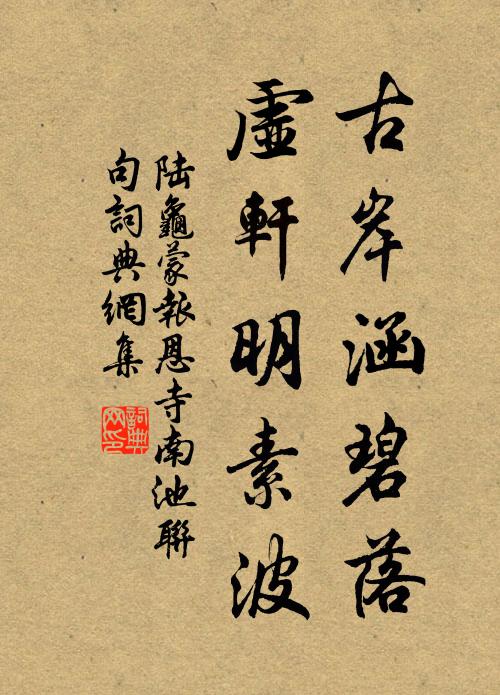 古岸涵碧落
虛軒明素波
陆龜蒙報恩寺南池聯
句詞典網集
詞典网印